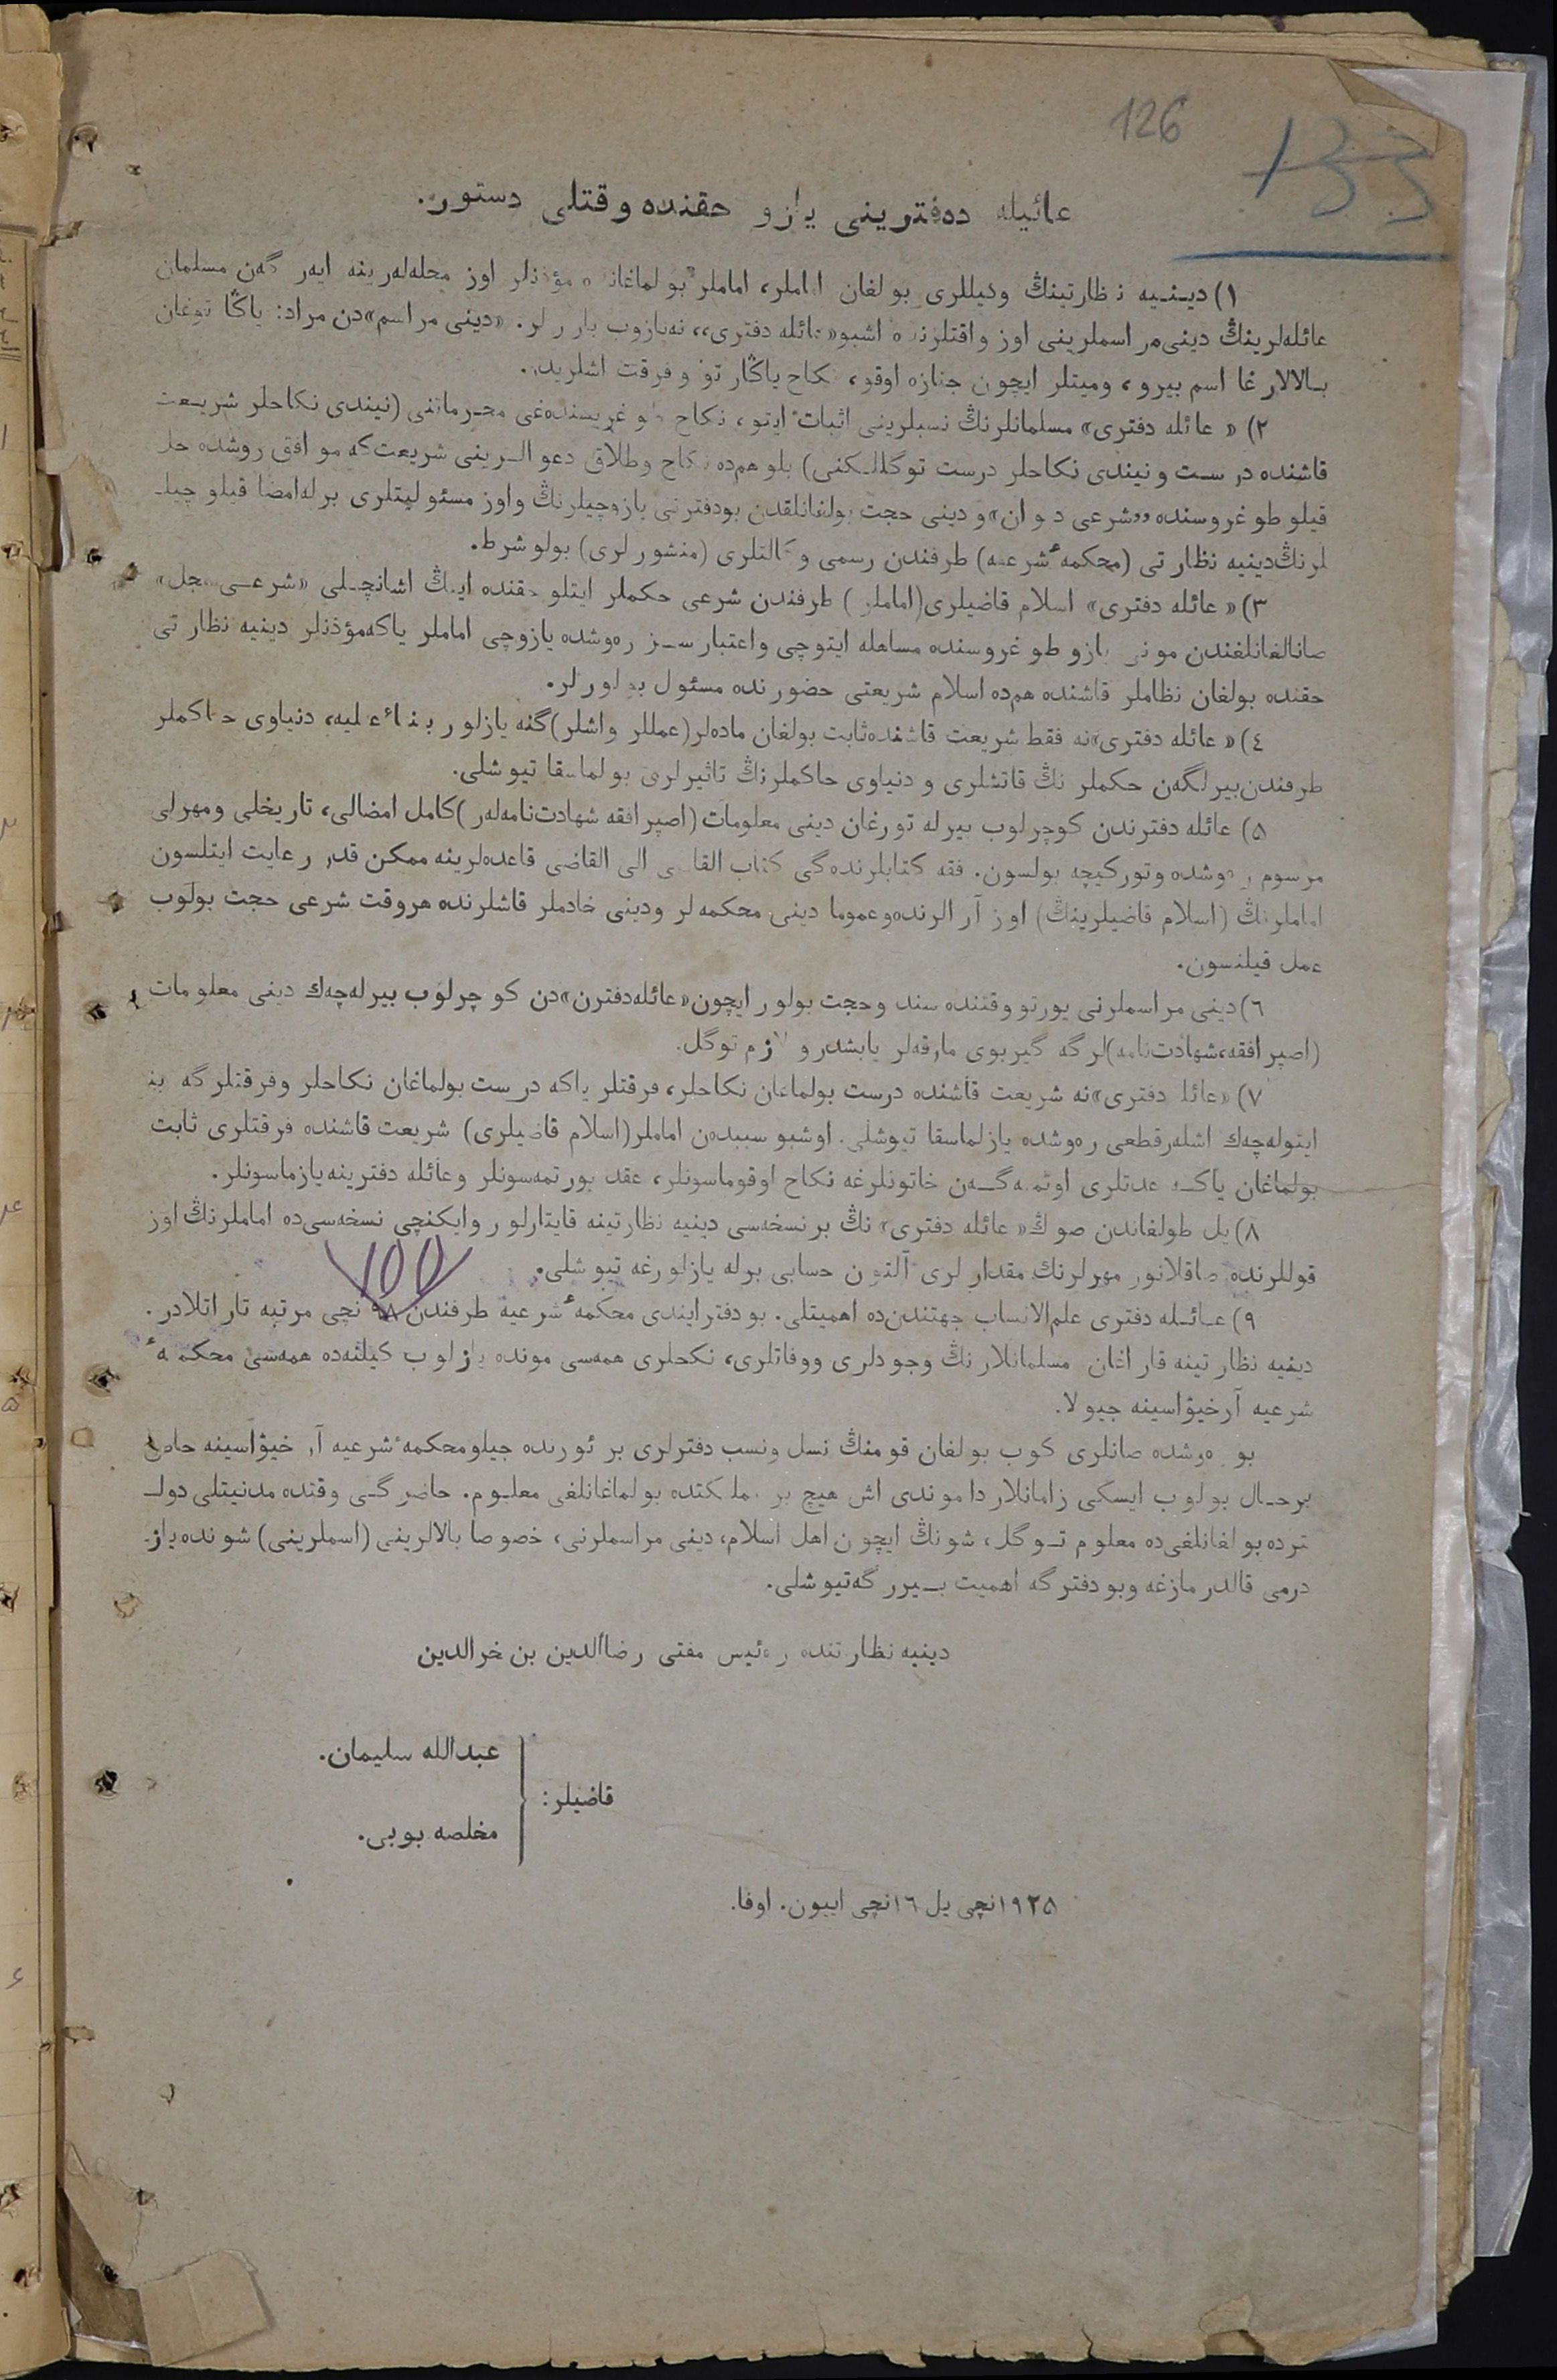 126
133
عائیله دەفترینی یازو حقنده وقتلی دستور.
۱) دیـنـیه نظارتینڭ وکیللری بولغان اماملر، اماملر بولماغاندە مؤذنلر اوز محله‌لەرینه ایەرگەن مسلمان
عائله‌لرینڭ دینی مراسملرینی اوز واقتلرندە اشبو «عائله دفتری»، نەیازوب باررلر. «دینی مراسم»دن مراد: یاڭا توغان
بـالالارغا اسم بیرو، ومیتلر ایچون جنازه اوقو، نکاح یاڭارتو و فرقت اشلریدر.
۲) «عائله دفتری» مسلمانلرنڭ نسبلرینی اثبات ایتو، نکاح طوغریسندەغی محرماتنی (نیندی نکاحلر شریعت
قاشنده درسـت ونیندی نکاحلر درست توگللـکنی) بلو هم‌ده نکاح وطلاق دعوالـرینی شریعت‌که موافق روشده حل
قیلو طوغروسنده «شرعی دیوان» و دینی حجت بولغانلقدن بودفترنی یازوچیلرنڭ واوز مسئولیتلری برله‌امضا قیلوچیلـ
لرنڭ‌دینیه نظارتی (محکمهٔ شرعیه) طرفندن رسمی وکالتلری (منشورلری) بولو شرط.
۳) «عائله دفتری» اسلام قاضیلری(اماملر) طرفندن شرعی حکملر ایتلو حقنده ایڭ اشانچـلی «شرعـی سجل»
صانالغانلغندن مونی یازو طوغروسنده مساهله ایتوچی واعتبارسـز رەوشده یازوچی اماملر یاکه‌مؤذنلر دینیه نظارتی
حقنده بولغان نظاملر قاشنده هم‌ده اسلام شریعتی حضورنده مسئول بولورلر.
٤) «عائله دفتری»نه فقط شریعت قاشنده‌ثابت بولغان ماده‌لر(عمللر واشلر)گنه یازلور بناءً علیه، دنیاوی حاکملر
طرفندن‌بیرلگەن حکملر نڭ قاتشلری و دنیاوی حاکملرنڭ تاثیرلری بولماسقا تیوشلی.
۵) عائله دفترندن کوچرلوب بیرله تورغان دینی معلومات (اصپرافقه شهادت‌نامه‌لەر)کامل امضالی، تاریخلی ومهرلی
مرسوم رەوشده وتورکیچه بولسون. فقه کتابلرنده‌گی کتاب القاضی الی القاضی قاعده‌لرینه ممکن قدر رعایت ایتلسون
اماملرنڭ (اسلام قاضیلرینڭ) اوز آرالرنده‌وعموما دینی محکمه‌لر ودینی خادملر قاشلرنده هروقت شرعی حجت بولوب
عمل قیلنسون.
٦) دینی مراسملرنی یورتو وقتنده سند وحجت بولور ایچون«عائله‌دفترن»دن کوچرلوب بیرله‌چەك دینی معلومات
(اصپرافقه،شهادت‌نامه)لرگه گیربوی مارقه‌لر یابشدرو لازم توگل.
۷) «عائله دفتری»نه شریعت قاشنده درست بولماغان نکاحلر، فرقتلر یاکه درست بولماغان نکاحلر وفرقتلرگه بنا
ایتوله‌چەك اشلەرقطعی رەوشده یازلماسقا تیوشلی. اوشبو سببدەن اماملر(اسلام قاضیلری) شریعت قاشنده فرقتلری ثابت
بولماغان یاکـه عدتلری اوتمـەگـەن خاتونلرغه نکاح اوقوماسونلر، عقد یورتمەسونلر وعائله دفترینه‌یازماسونلر.
۸) یل طولغاندن صوڭ «عائله دفتری» نڭ برنسخه‌سی دینیه نظارتینه قایتارلور وایکنچی نسخه‌سی‌ده اماملرنڭ اوز
قوللرنده صاقلانور مهرلرنڭ مقدارلری آلتون حسابی برله یازلورغه تیوشلی.
۹) عـائـله دفتری علم‌الانساب جهتندن‌ده اهمیتلی. بودفتر ایندی محکمهٔ شرعیه طرفندن ۹۸ نچی مرتبه تاراتلادر.
دینیه نظارتینه قاراغان مسلمانلارنڭ وجودلری ووفاتلری، نکحلری همه‌سی مونده یازلوب کیلنه‌ده همه‌سی محکمهٔ
شرعیه آرخیۋاسینه جیولا.
بو رەوشده صانلری کوب بولغان قومنڭ نسل ونسب دفترلری بر ئورنده جیلومحکمهٔ شرعیه آرخیۋاسینه خاص
برحـال بولوب ایسکی زامانلاردا موندی اش هیچ بر مملکتده بولماغانلغی معلوم. حاضرگـی وقتده مدنیتلی دولـ
تردە بولغانلغی‌ده معلوم تـوگل، شونڭ ایچون اهل اسلام، دینی مراسملرنی، خصوصا بالالرینی (اسملرینی) شونده‌یازـ
درمی قالدرمازغه وبودفترگه اهمیت بـیررگه‌تیوشلی.
دینیه نظارتنده رەئیس مفتی رضاالدین بن فخرالدین
قاضیلر:
عبدالله سلیمان.
مخلصه بوبی.
۱۹۲۵نچی یل ۱٦نچی ایيون. اوفا.